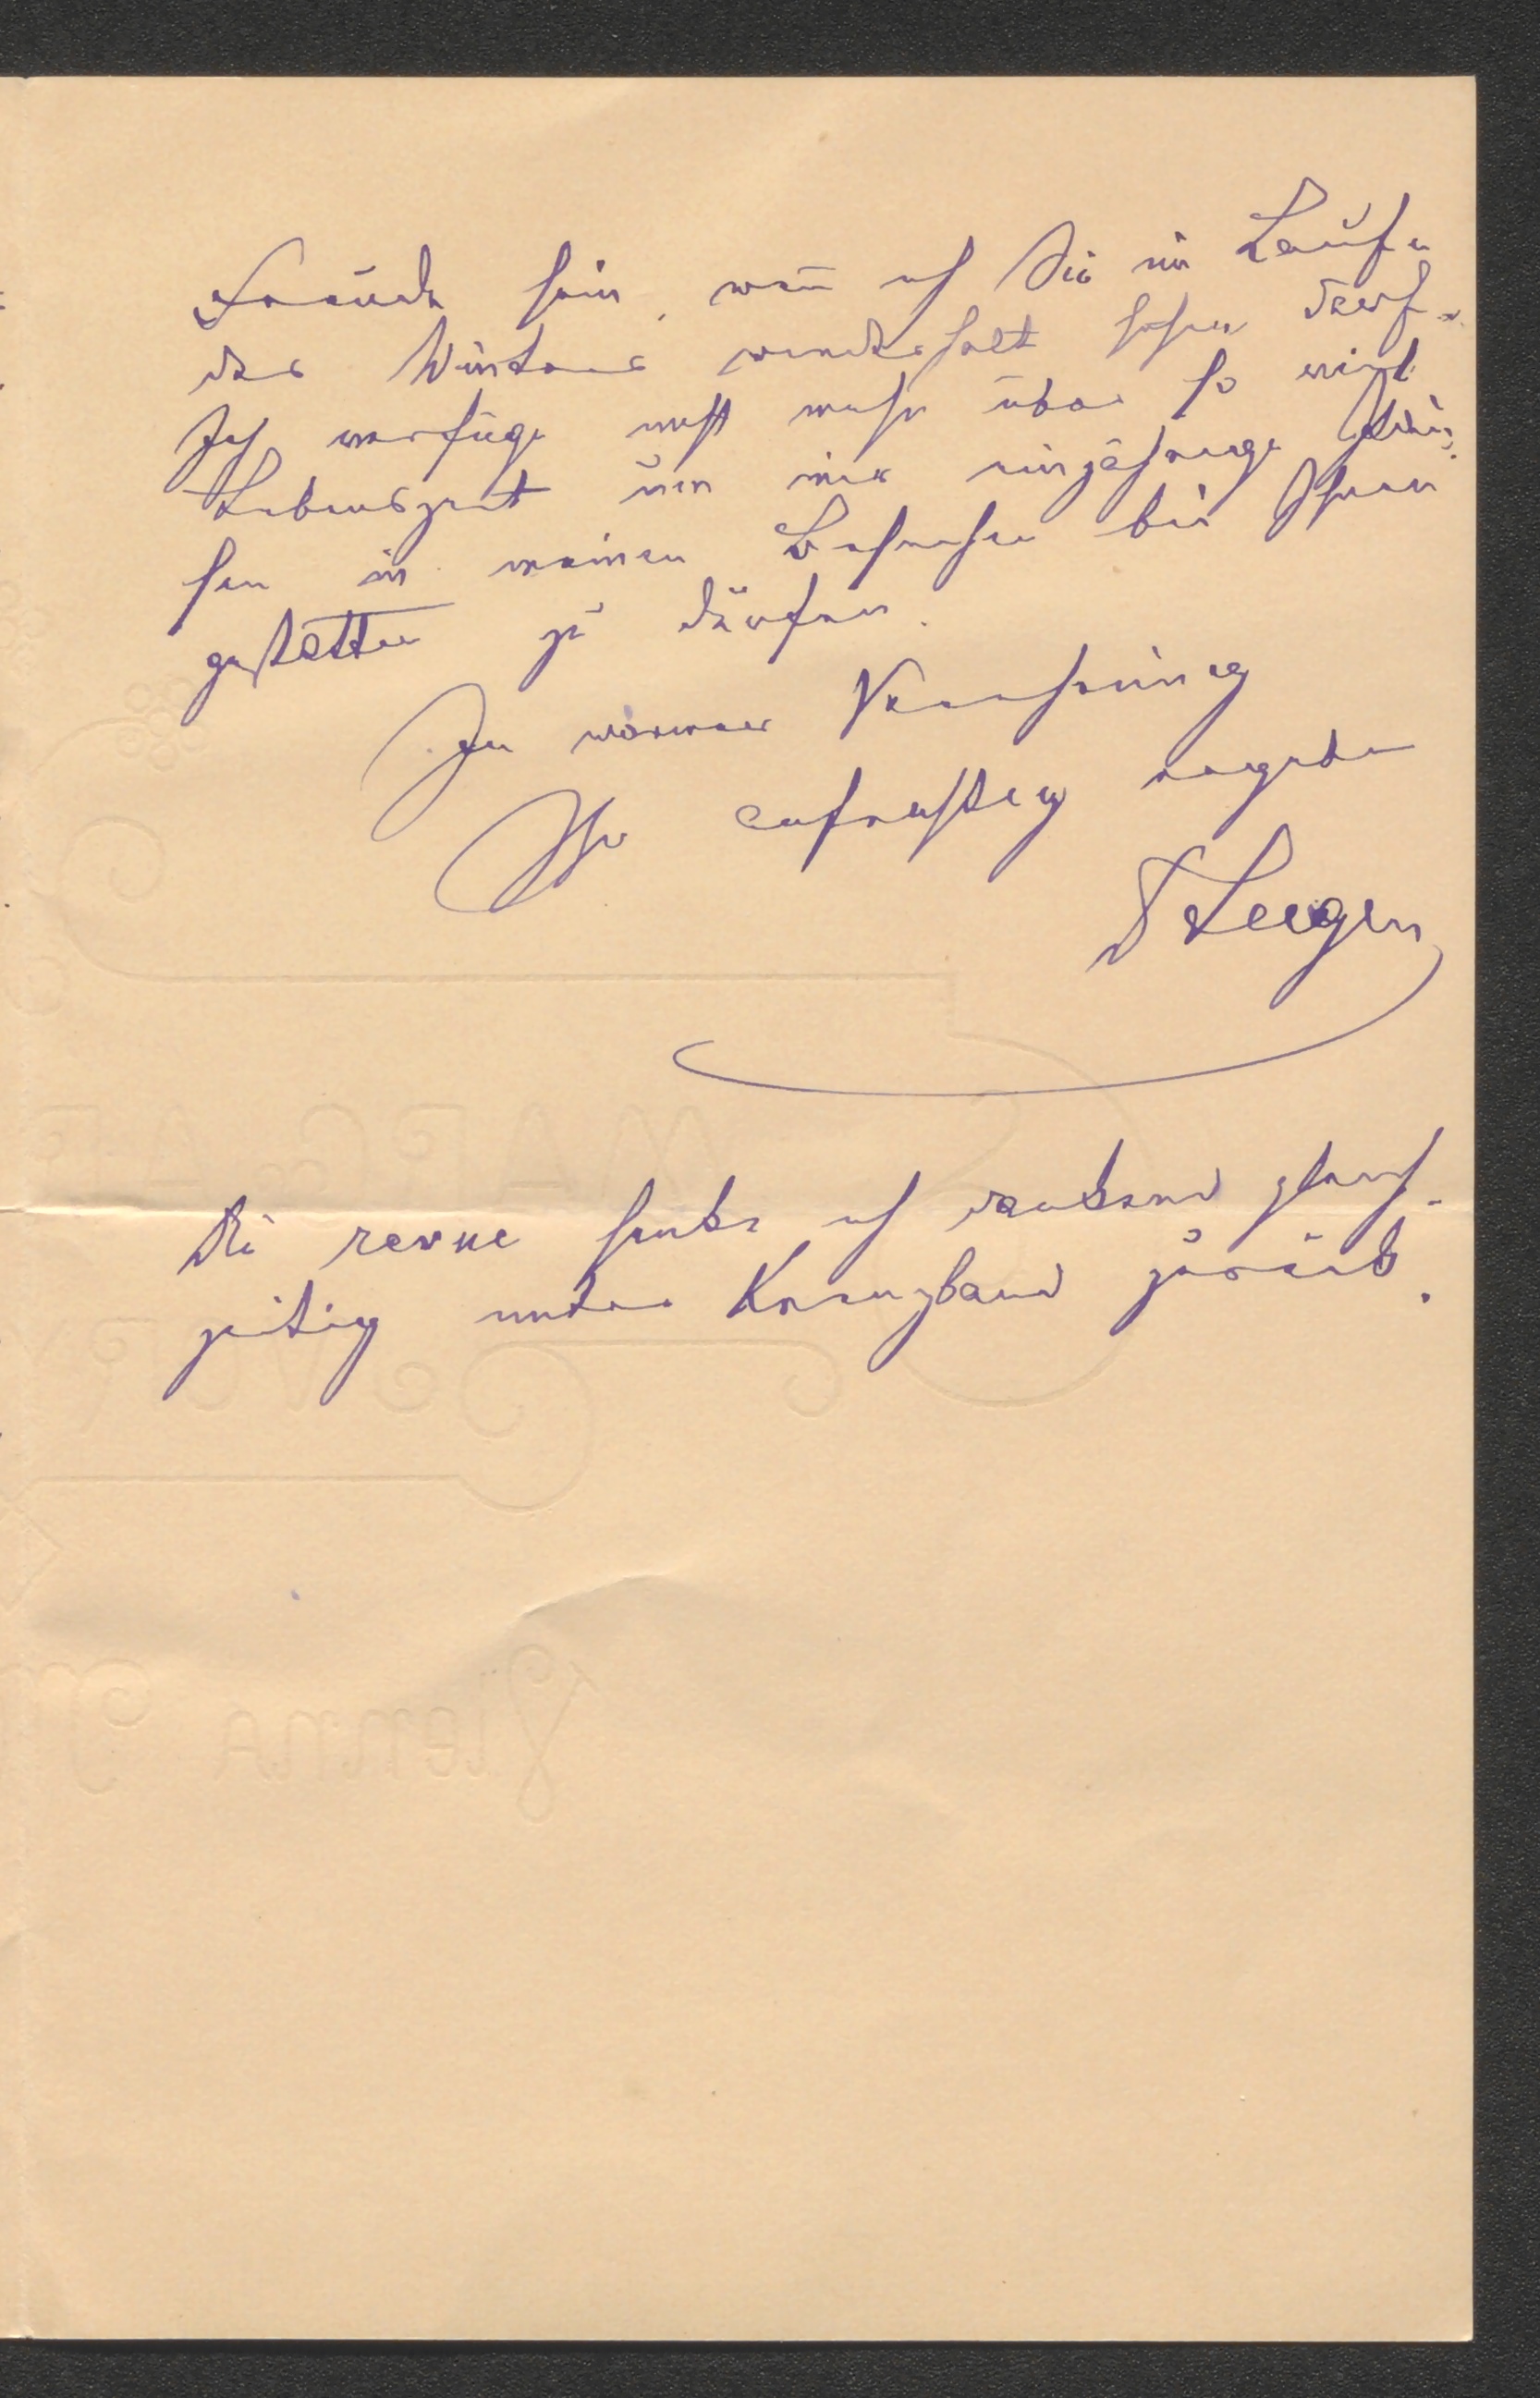 Freude sein, wen̄ ich Sie im Laufe
des Winters wiederholt sehen darf.
Ich verfüge nicht mehr über so viel
Lebenszeit um mir einjährige Pau-
sen in meinen Besuchen bei Ihnen
gestatten zu dürfen.
In warmer Verehrung
Ihr aufrichtig ergeben
Seegen
Die revue sende ich dankend gleich-
zeitig unter Kreuzband zurück.